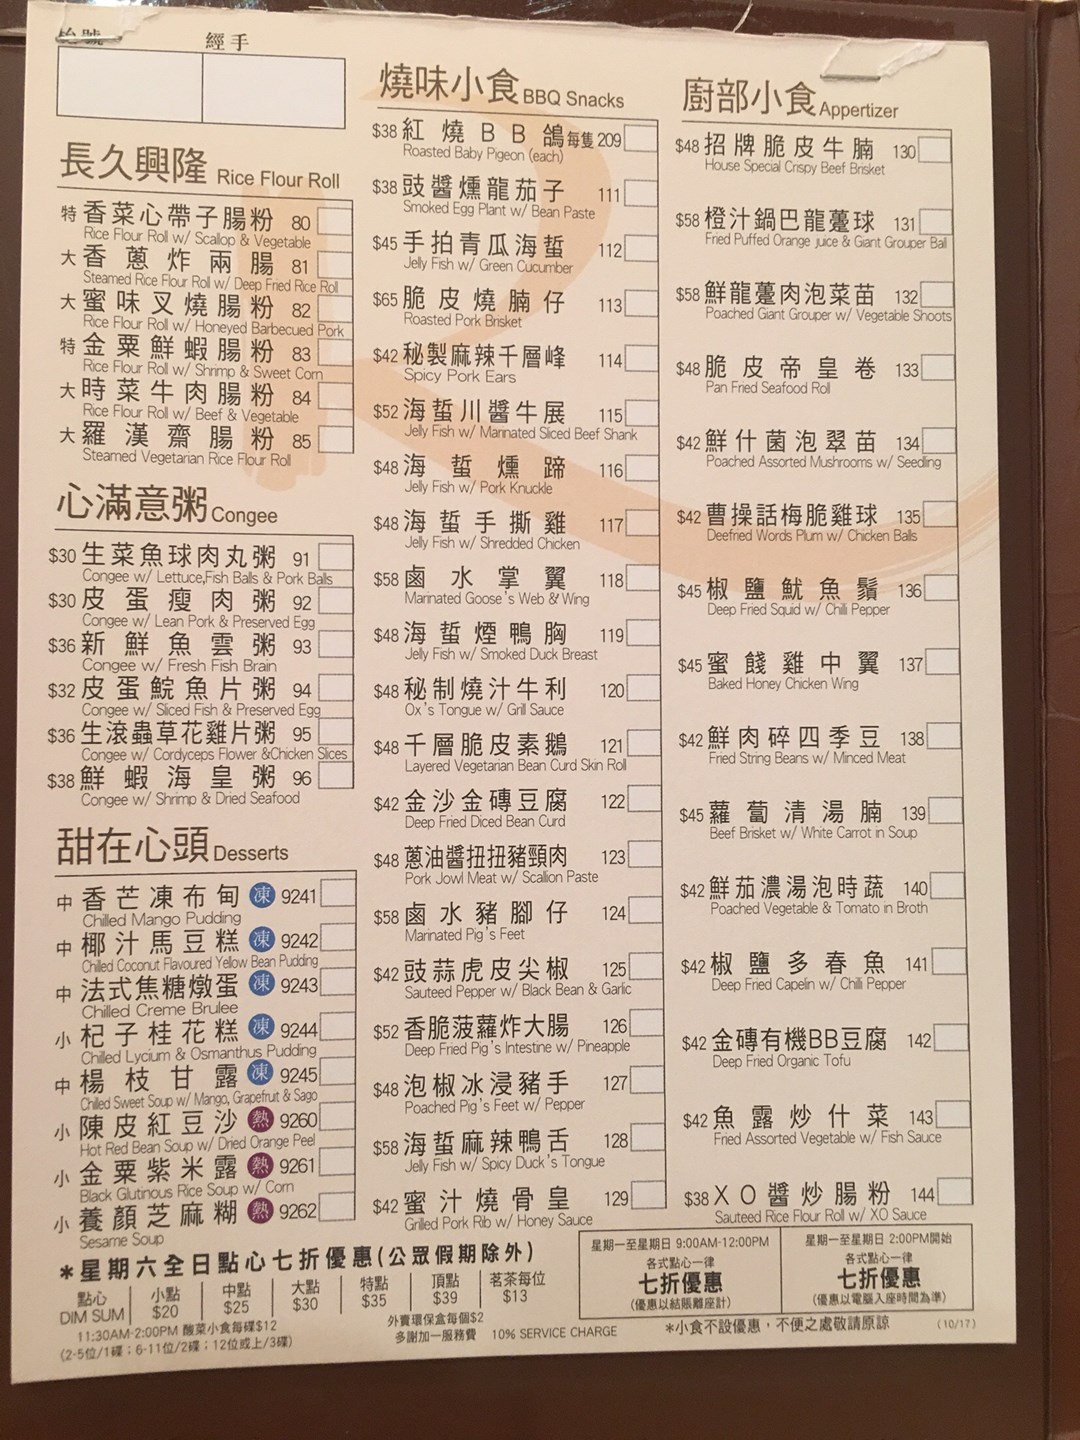 枱號 經手
長久興隆 Rice Flour Roll
特 香菜心帶子腸粉 80
Rice Flour Roll w/ Scallop & Vegetable
大 香蔥炸兩腸 81
Steamed Rice Flour Roll w/ Deep Fried Rice Roll
大 蜜味叉燒腸粉 82
Rice Flour Roll w/ Honeyed Barbecued Pork
特 金粟鮮蝦腸粉 83
Rice Flour Roll w/ Shrimp & Sweet Corn
大 時菜牛肉腸粉 84
Rice Flour Roll w/ Beef & Vegetable
大 羅漢齋腸粉 85
Steamed Vegetarian Rice Flour Roll
心滿意粥 Congee
$30 生菜魚球肉丸粥 91
Congee w/ Lettuce,Fish Balls & Pork Balls
$30 皮蛋瘦肉粥 92
Congee w/ Lean Pork & Preserved Egg
$36 新鮮魚雲粥 93
Congee w/ Fresh Fish Brain
$32 皮蛋鯇魚片粥 94
Congee w/ Sliced Fish & Preserved Egg
$36 生滾蟲草花雞片粥 95
Congee w/ Cordyceps Flower &Chicken Slices
$38 鮮蝦海皇粥 96
Congee w/ Shrimp & Dried Seafood
甜在心頭 Desserts
中 香芒凍布甸 凍 9241
Chilled Mango Pudding
中 椰汁馬豆糕 凍 9242
Chilled Coconut Flavoured Yellow Bean Pudding
中 法式焦糖燉蛋 凍 9243
Chilled Creme Brulee
小 杞子桂花糕 凍 9244
Chilled Lycium & Osmanthus Pudding
中 楊枝甘露 凍 9245
Chilled Sweet Soup w/ Mango, Grapefruit & Sago
小 陳皮紅豆沙 熱 9260
Hot Red Bean Soup w/ Dried Orange Peel
小 金粟紫米露 熱 9261
Black Glutinous Rice Soup w/ Corn
小 養顏芝麻糊 熱 9262
Sesame Soup
燒味小食 BBQ Snacks
$38 紅燒BB鴿 每隻 209
Roasted Baby Pigeon (each)
$38 豉醬燻龍茄子 111
Smoked Egg Plant w/ Bean Paste
$45 手拍青瓜海蜇 112
Jelly Fish w/ Green Cucumber
$65 脆皮燒腩仔 113
Roasted Pork Brisket
$42 秘製麻辣千層峰 114
Spicy Pork Ears
$52 海蜇川醬牛展 115
Jelly Fish w/ Marinated Sliced Beef Shank
$48 海蜇燻蹄 116
Jelly Fish w/ Pork Knuckle
$48 海蜇手撕雞 117
Jelly Fish w/ Shredded Chicken
$58 鹵水掌翼 118
Marinated Goose's Web & Wing
$48 海蜇煙鴨胸 119
Jelly Fish w/ Smoked Duck Breast
$48 秘制燒汁牛利 120
Ox's Tongue w/ Grill Sauce
$48 千層脆皮素鵝 121
Layered Vegetarian Bean Curd Skin Roll
$42 金沙金磚豆腐 122
Deep Fried Diced Bean Curd
$48 蔥油醬扭扭豬頸肉 123
Pork Jowl Meat w/ Scallion Paste
$58 鹵水豬腳仔 124
Marinated Pig's Feet
$42 豉蒜虎皮尖椒 125
Sauteed Pepper w/ Black Bean & Garlic
$52 香脆菠蘿炸大腸 126
Deep Fried Pig's Intestine w/ Pineapple
$48 泡椒冰浸豬手 127
Poached Pig's Feet w/ Pepper
$58 海蜇麻辣鴨舌 128
Jelly Fish w/ Spicy Duck's Tongue
$42 蜜汁燒骨皇 129
Grilled Pork Rib w/ Honey Sauce
廚部小食 Appertizer
$48 招牌脆皮牛腩 130
House Special Crispy Beef Brisket
$58 橙汁鍋巴龍躉球 131
Fried Puffed Orange juice & Giant Grouper Ball
$58 鮮龍躉肉泡菜苗 132
Poached Giant Grouper w/ Vegetable Shoots
$48 脆皮帝皇卷 133
Pan Fried Seafood Roll
$42 鮮什菌泡翠苗 134
Poached Assorted Mushrooms w/ Seedling
$42 曹操話梅脆雞球 135
Deefried Words Plum w/ Chicken Balls
$45 椒鹽魷魚鬚 136
Deep Fried Squid w/ Chilli Pepper
$45 蜜餞雞中翼 137
Baked Honey Chicken Wing
$42 鮮肉碎四季豆 138
Fried String Beans w/ Minced Meat
$45 蘿蔔清湯腩 139
Beef Brisket w/ White Carrot in Soup
$42 鮮茄濃湯泡時蔬 140
Poached Vegetable & Tomato in Broth
$42 椒鹽多春魚 141
Deep Fried Capelin w/ Chilli Pepper
$42 金磚有機BB豆腐 142
Deep Fried Organic Tofu
$42 魚露炒什菜 143
Fried Assorted Vegetable w/ Fish Sauce
$38 XO醬炒腸粉 144
Sauteed Rice Flour Roll w/ XO Sauce
*星期六全日點心七折優惠(公眾假期除外)
點心 DIM SUM 小點 $20 中點 $25 大點 $30 特點 $35 頂點 $39 茗茶每位 $13
11:30AM-2:00PM 酸菜小食每碟$12
(2-5位/1碟；6-11位/2碟；12位或上/3碟)
外賣環保盒每個$2
多謝加一服務費 10% SERVICE CHARGE
星期一至星期日 9:00AM-12:00PM
各式點心一律
七折優惠
(優惠以結賬離座計)
星期一至星期日 2:00PM開始
各式點心一律
七折優惠
(優惠以電腦入座時間為準)
*小食不設優惠，不便之處敬請原諒 (10/17)